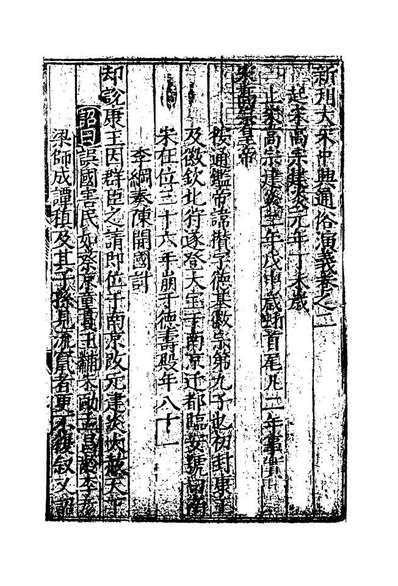 新刊大宋中興通俗演義卷之二
起宋高宗建炎元年丁未歲
止宋高宗建炎二年戊申歲首尾凡二年事實
宋高宗皇帝
按通鑑帝諱構字德基徽宗第九子也初封康王
及徽欽北狩遂登大宝于南京迁都臨安號曰南
宋在位三十六年崩于德壽殿年八十一
李綱奏陳開國計
却說康王因群臣之請即位于南京改元建炎大赦天下
詔曰誤國害民如蔡京童貫王黼朱勔孟昌齡李彥
梁師成譚稹及其子孫見流竄者更不復叙又詔